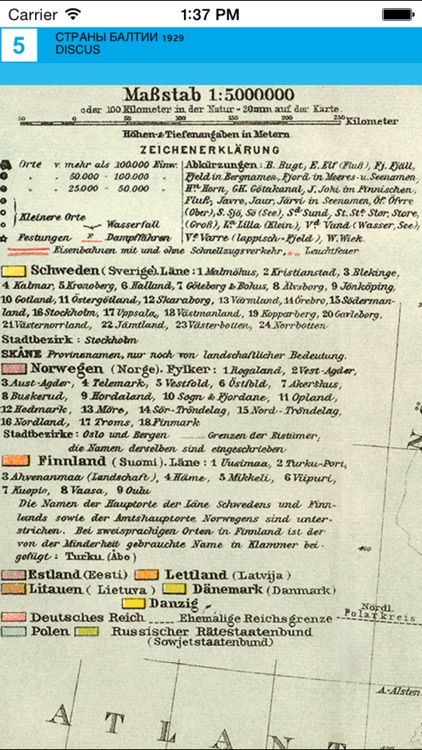 Carrier 1:37 PM
5 СТРАНЫ БАЛТИИ 1929
DISCUS
Maßstab 1:5.000000
oder 100 Kilometer in der Natur - 20mm auf der Karte.
50 0 50 100 150 200 250 Kilometer
Höhen-&Tiefenangaben in Metern
ZEICHENERKLÄRUNG
Orte v. mehr als 100.000 Einw.
" " 50.000 - 100.000 "
" " 25.000 - 50.000 "
Kleinere Orte
Wasserfall
Festungen F Dampffähren
Abkürzungen: B. Bugt, E. Elf (Fluß), Fj. Fjäll,
Fjeld in Bergnamen, Fjord in Meeres- u. Seenamen,
Hn. Horn, GK. Götakanal, J. Joki im Finnischen,
Fluß, Javre, Jaur, Järvi in Seenamen, Öf. Öfre
(Ober), S. Sjö, Sö (See), Sd Sund, St. Sta Stor, Store,
(Groß), La Lilla (Klein), Vd Vand (Wasser, See),
Ve Varre (lappisch-Fjeld), W. Wiek
Eisenbahnen mit und ohne Schnellzugsverkehr, Leuchtfeuer
Schweden (Sverige). Läne: 1 Malmöhus, 2 Kristianstad, 3 Blekinge,
4 Kalmar, 5 Kronoberg, 6 Halland, 7 Göteborg & Bohus, 8 Älvsborg, 9 Jönköping,
10 Gotland, 11 Östergötland, 12 Skaraborg, 13 Värmland, 14 Örebro, 15 Söderman-
land, 16 Stockholm, 17 Uppsala, 18 Västmanland, 19 Kopparberg, 20 Gävleborg,
21 Västernorrland, 22 Jämtland, 23 Västerbotten, 24 Norrbotten
Stadtbezirk: Stockholm
SKÅNE Provinznamen, nur noch von landschaftlicher Bedeutung.
Norwegen (Norge). Fylker: 1 Rogaland, 2 Vest-Agder,
3 Aust-Agder, 4 Telemark, 5 Vestfold, 6 Östfold, 7 Akershus,
8 Buskerud, 9 Hordaland, 10 Sogn & Fjordane, 11 Opland,
12 Hedmark, 13 Möre, 14 Sör-Tröndelag, 15 Nord-Tröndelag,
16 Nordland, 17 Troms, 18 Finmark
Stadtbezirke: Oslo und Bergen Grenzen der Bistümer,
die Namen derselben sind eingeschrieben
Finnland (Suomi). Läne: 1 Uusimaa, 2 Turku-Pori,
3 Ahvenanmaa (Landschaft), 4 Häme, 5 Mikkeli, 6 Viipuri,
7 Kuopio, 8 Vaasa, 9 Oulu
Die Namen der Hauptorte der Läne Schwedens und Finn-
lands sowie der Amtshauptorte Norwegens sind unter-
strichen. Bei zweisprachigen Orten in Finnland ist der
von der Minderheit gebrauchte Name in Klammer bei-
gefügt: Turku (Åbo)
Estland (Eesti) Lettland (Latvija)
Litauen (Lietuva) Dänemark (Danmark)
Danzig
Deutsches Reich Ehemalige Reichsgrenze
Polen Russischer Rätestaatenbund
(Sowjetstaatenbund)
Nördl.
Polarkreis
A.-Alsten
ATLANT